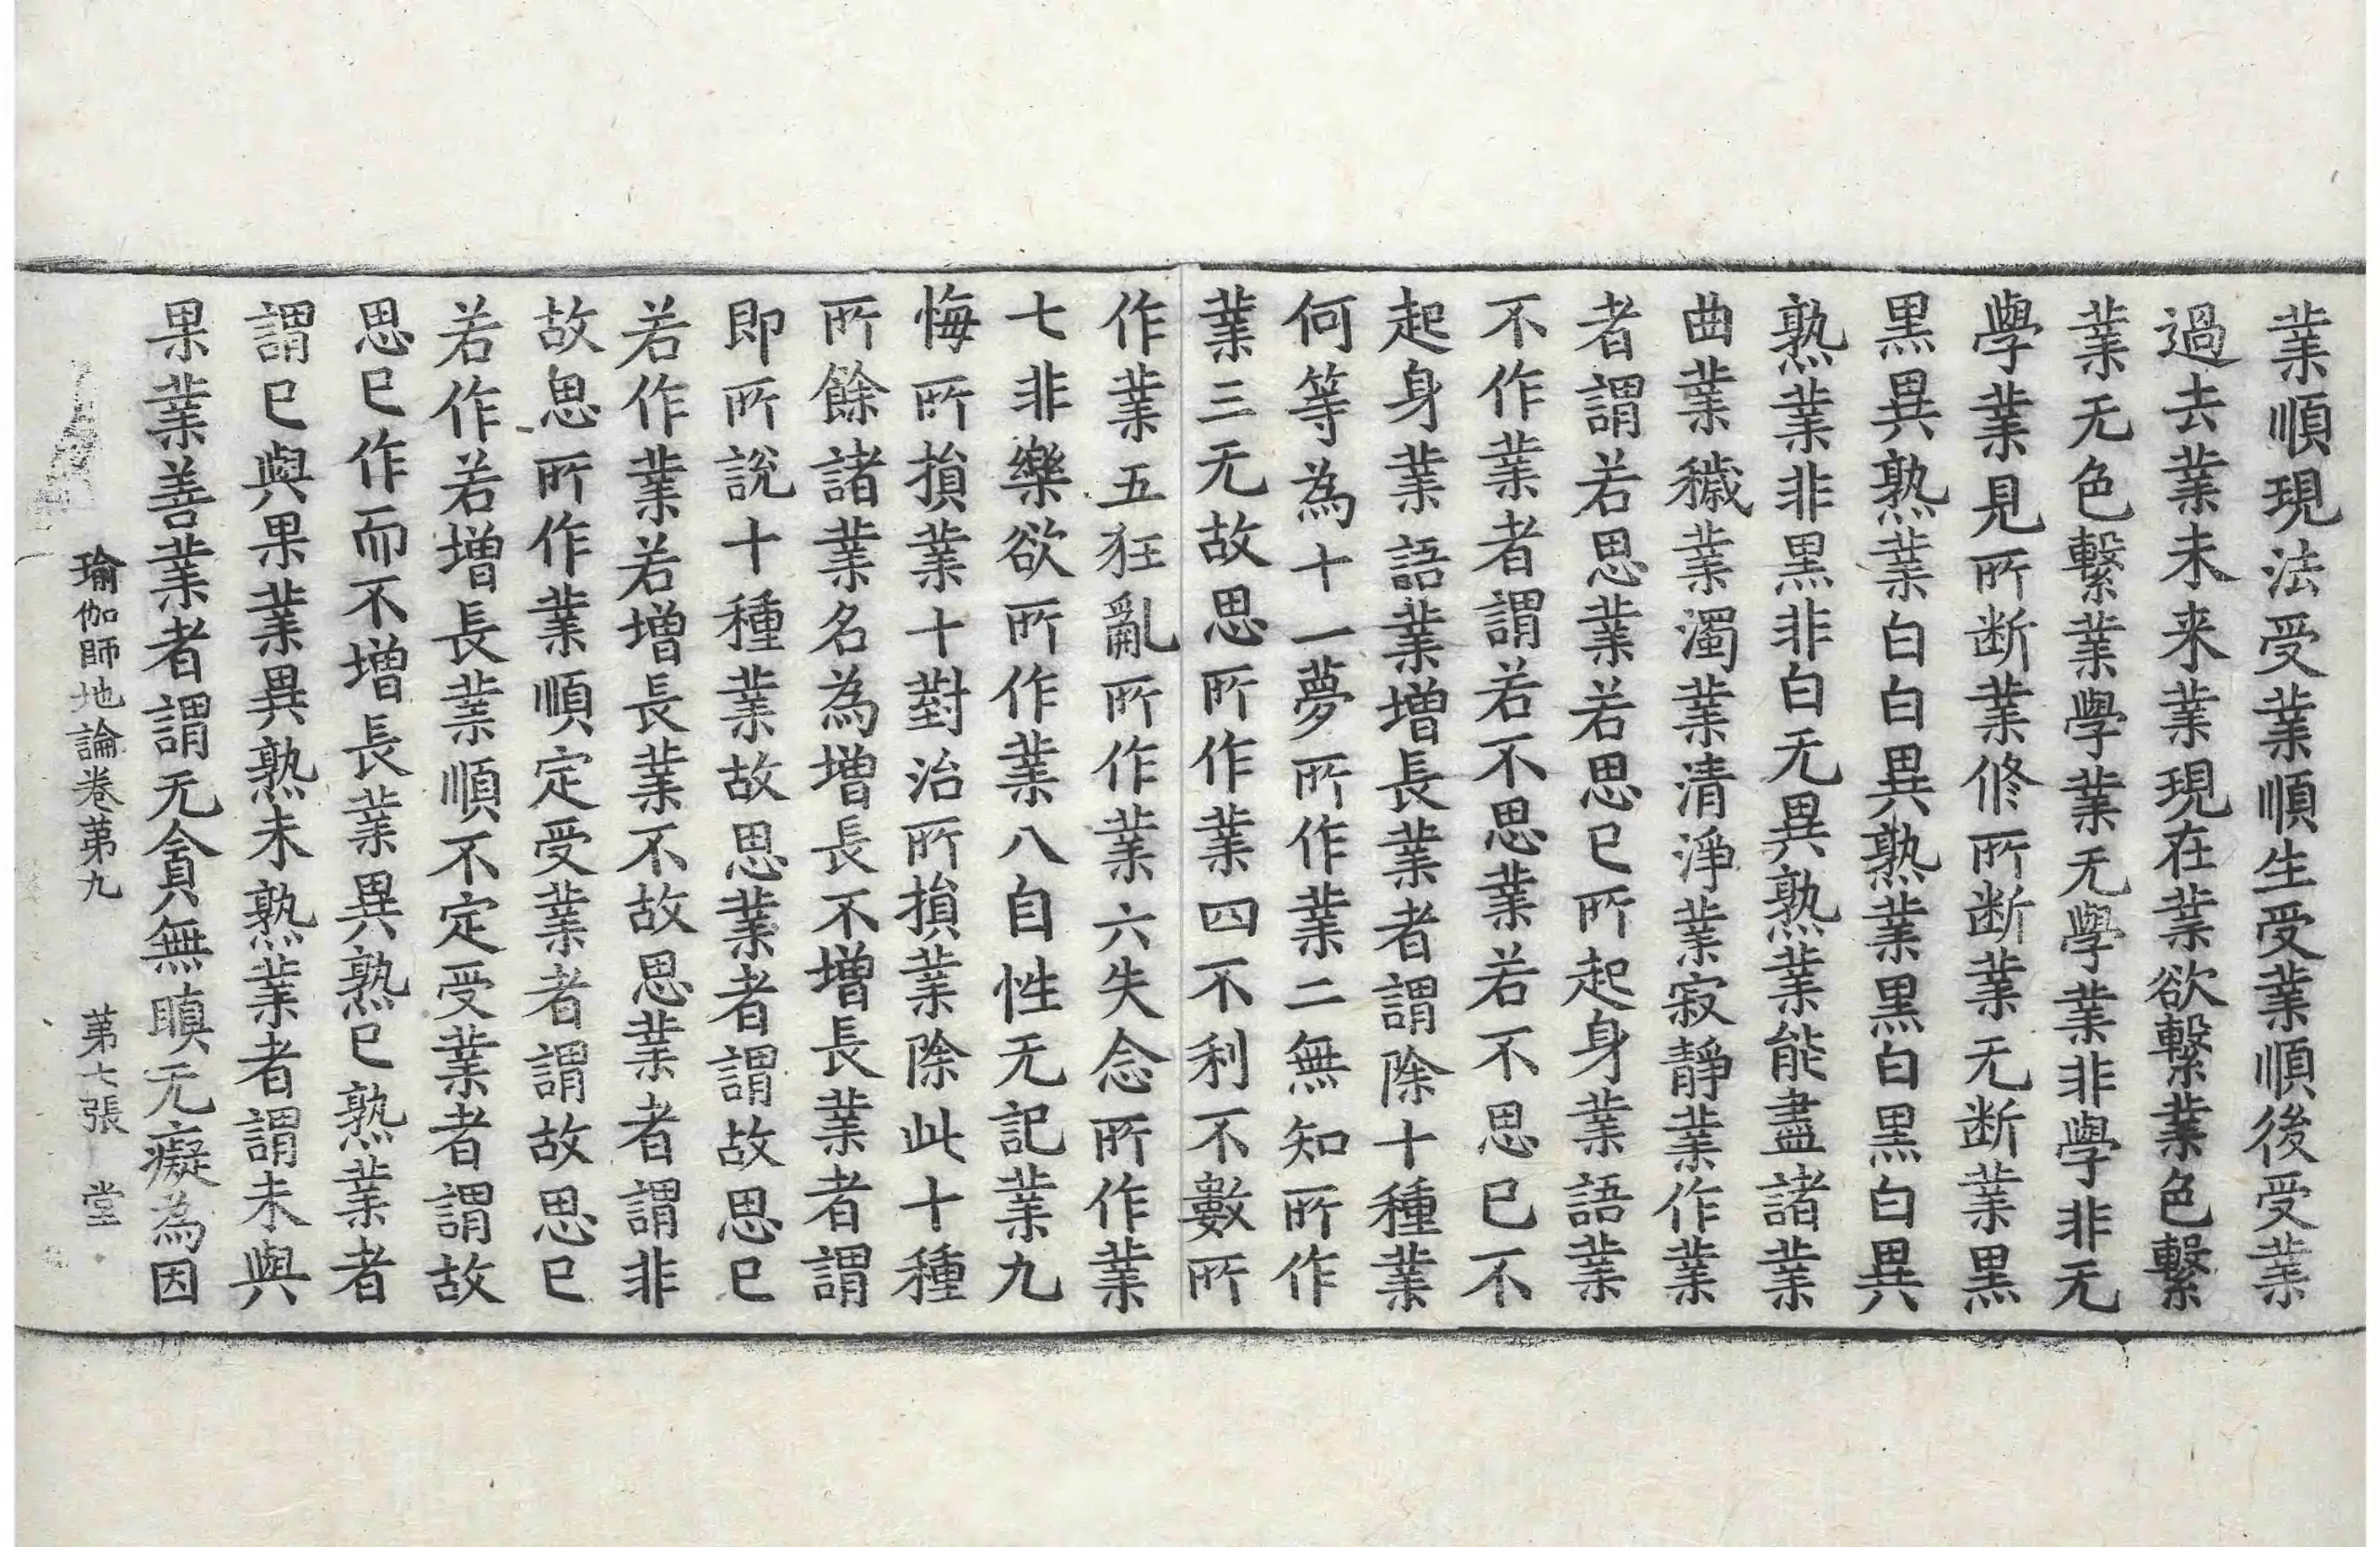 業順現法受業順生受業順後受業
過去業未来業現在業欲繫業色繫
業无色繫業學業无學業非學非无
學業見所断業修所断業无断業黒
黒異熟業白白異熟業黒白黒白異
熟業非黒非白无異熟業能盡諸業
曲業穢業濁業清淨業寂靜業作業
者謂若思業若思已所起身業語業
不作業者謂若不思業若不思已不
起身業語業増長業者謂除十種業
何等為十一夢所作業二無知所作
業三无故思所作業四不利不數所
作業五狂亂所作業六失念所作業
七非樂欲所作業八自性无記業九
悔所損業十對治所損業除此十種
所餘諸業名為増長不増長業者謂
即所説十種業故思業者謂故思已
若作業若増長業不故思業者謂非
故思所作業順定受業者謂故思已
若作若増長業順不定受業者謂故
思已作而不増長業異熟已熟業者
謂已與果業異熟未熟業者謂未與
果業善業者謂无貪無瞋无癡為因
瑜伽師地論卷苐九 苐七張 堂